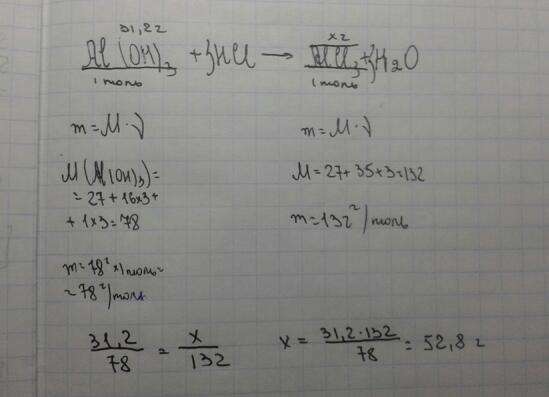 31,2г xг
Al(OH)₃ + 3HCl → AlCl₃ + 3H₂O
1 моль 1 моль
m = M · ν m = M · ν
M(Al(OH)₃) = M = 27 + 35 + 3 = 132
= 27 + 16x3 +
+ 1x3 = 78 m = 132 г/моль
m = 78 г x 1 моль =
= 78 г/моль
31,2/78 = x/132 x = 31,2 · 132/78 = 52,8 г